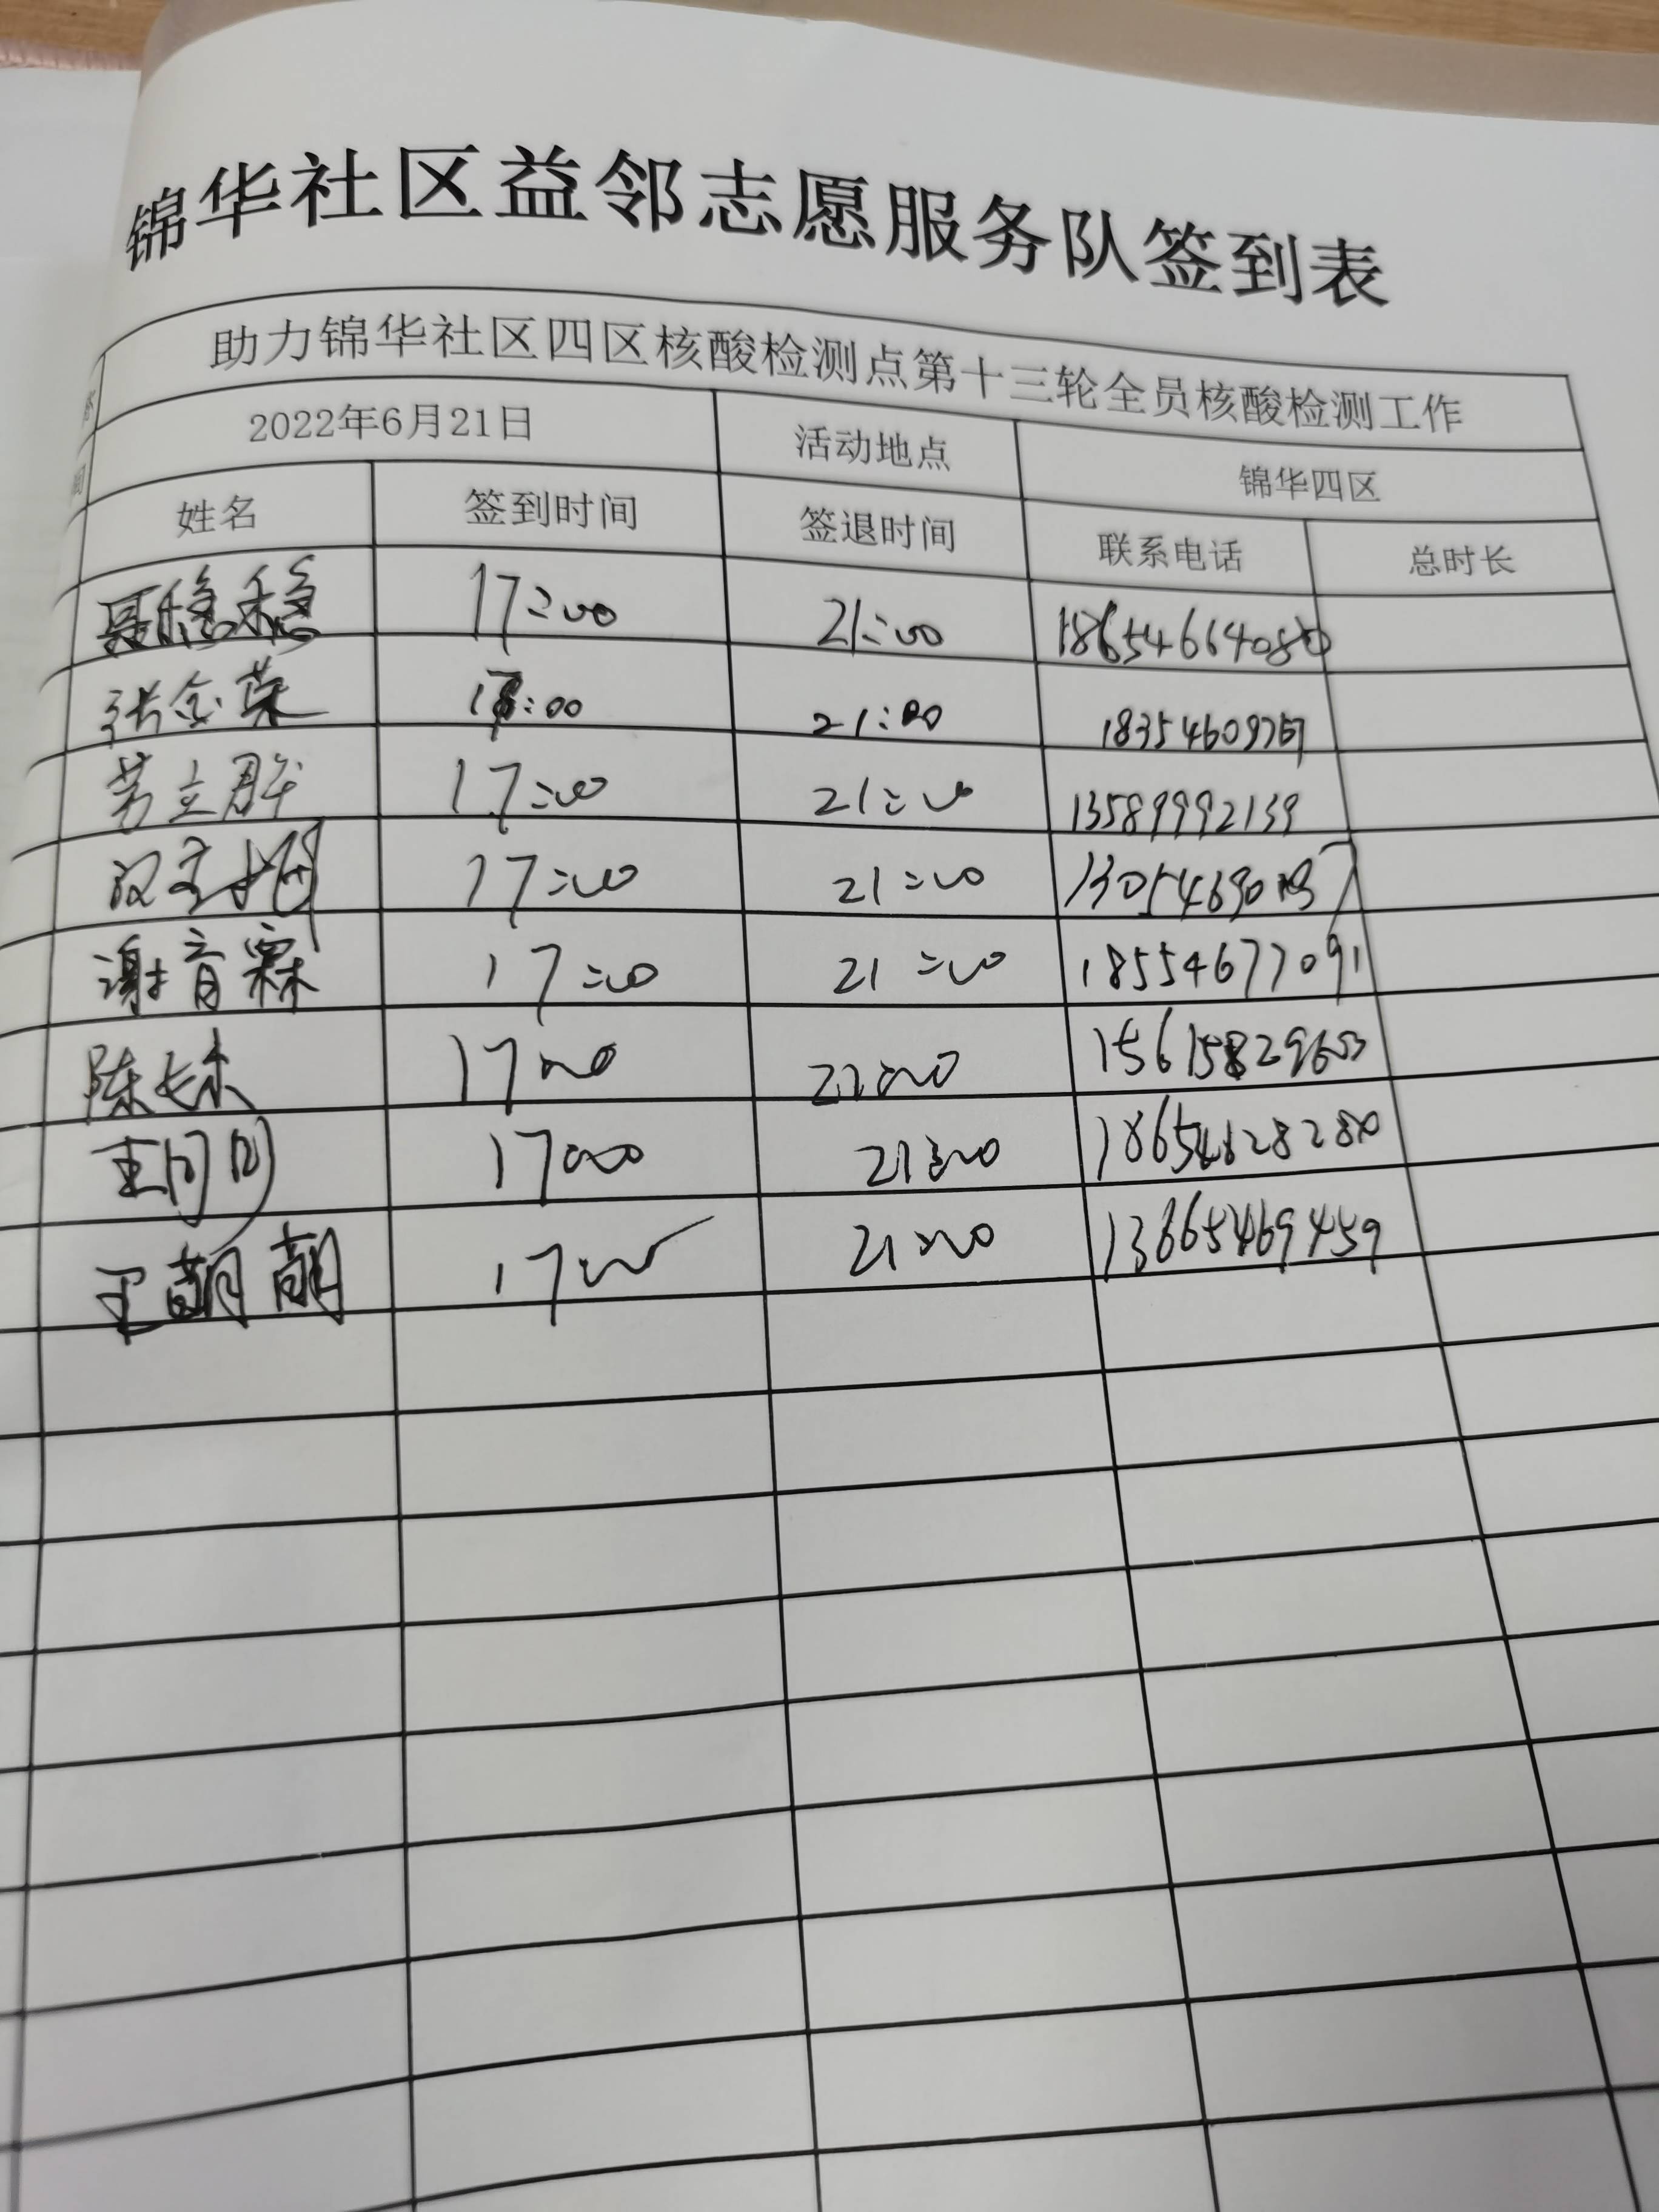 锦华社区益邻志愿服务队签到表
助力锦华社区四区核酸检测点第十三轮全员核酸检测工作
2022年6月21日 活动地点 锦华四区
姓名 签到时间 签退时间 联系电话 总时长
聂稳稳 17:00 21:00
张金荣 21:00
17:00 21:00 13589992139
17:00 21:00
谢育霖 17:00 21:00 18554677091
17:00
王同同 17:00 21:00
王萌萌 17:00 21:00